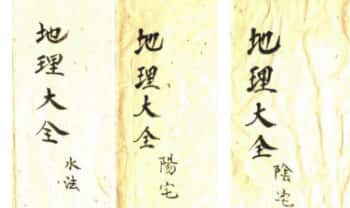 地理大全
水法
地理大全
陽宅
地理大全
陰宅